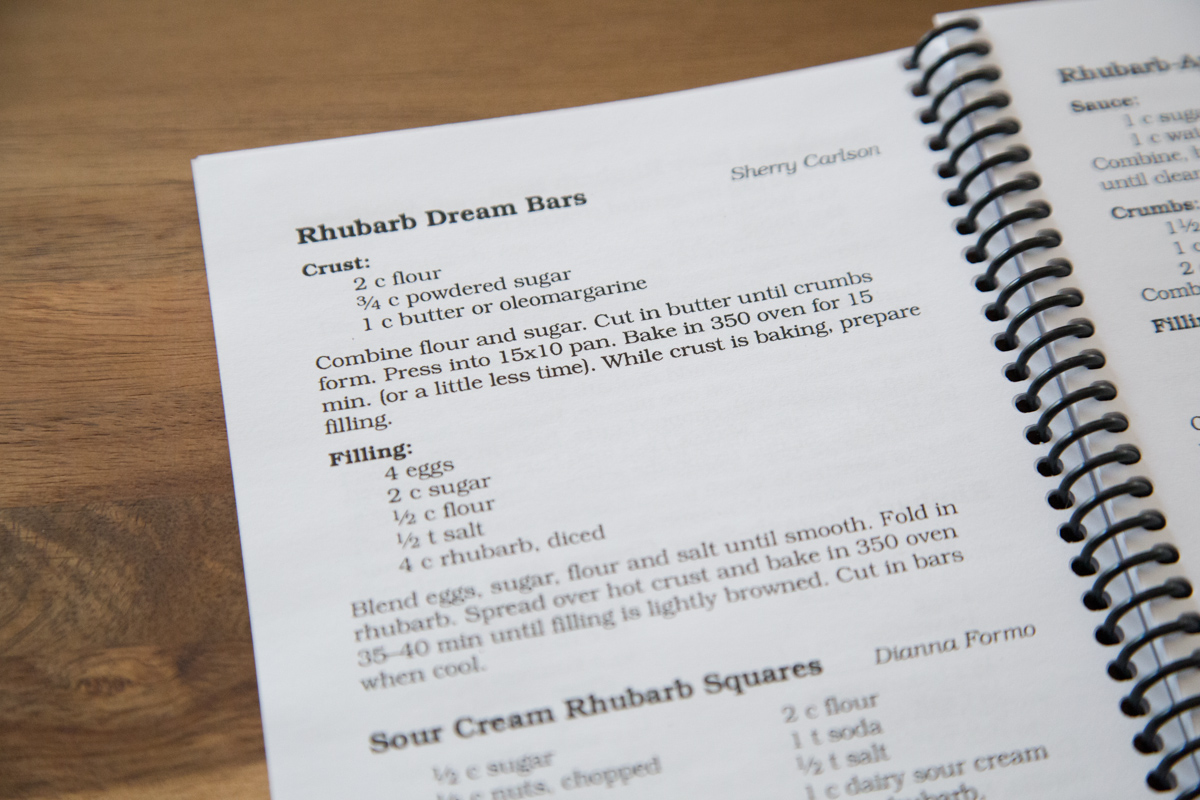 Sherry Carlson
Rhubarb Dream Bars
Crust:
2 c flour
¾ c powdered sugar
1 c butter or oleomargarine
Combine flour and sugar. Cut in butter until crumbs
form. Press into 15x10 pan. Bake in 350 oven for 15
min. (or a little less time). While crust is baking, prepare
filling.
Filling:
4 eggs
2 c sugar
½ c flour
½ t salt
4 c rhubarb, diced
Blend eggs, sugar, flour and salt until smooth. Fold in
rhubarb. Spread over hot crust and bake in 350 oven
35–40 min until filling is lightly browned. Cut in bars
when cool.
Dianna Formo
Sour Cream Rhubarb Squares
½ c sugar
c nuts, chopped
2 c flour
1 t soda
½ t salt
1 c dairy sour cream
Sauce:
1 c
1 c
Combine,
until clear
Crumbs:
1½
1 c
2